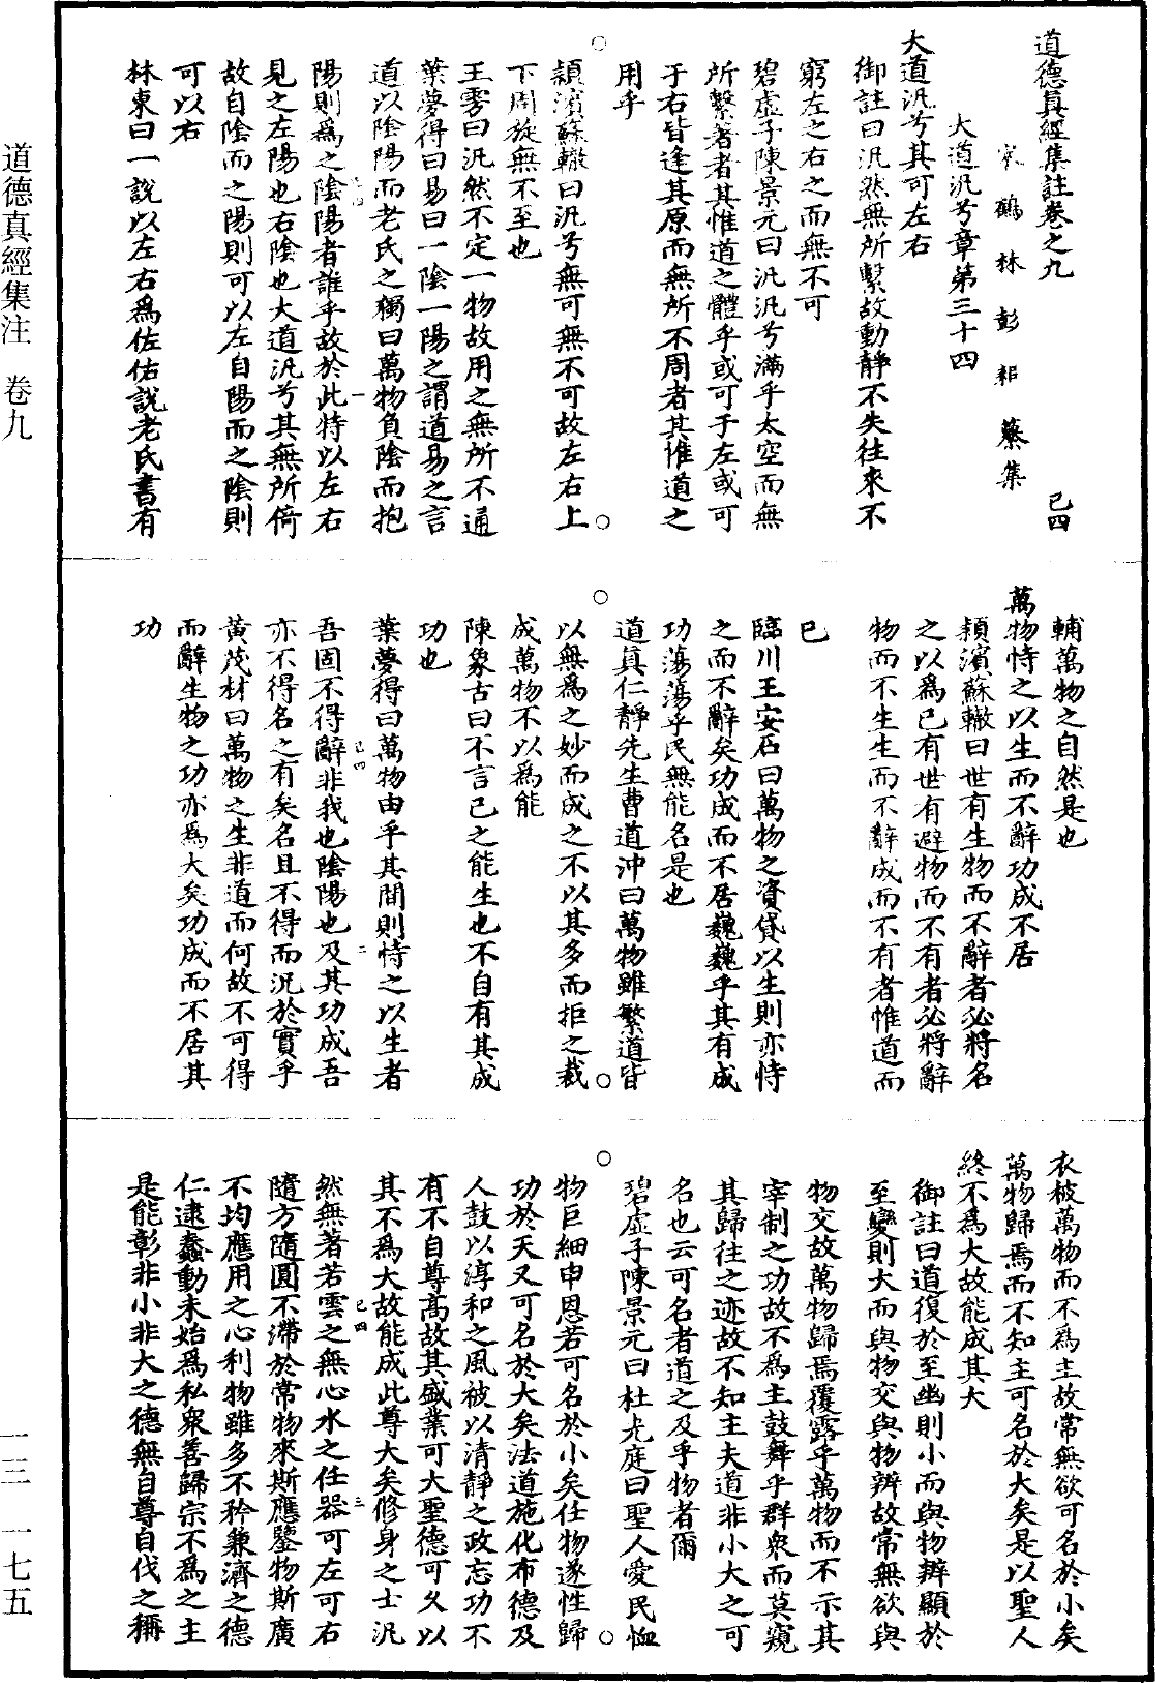 道德真經集註卷之九 己四
宋鶴林彭耜纂集
大道汎兮章第三十四
大道汎兮其可左右
御註曰汎然無所繫故動靜不失往來不
窮左之右之而無不可
碧虛子陳景元曰汎汎兮滿乎太空而無
所繫著者其惟道之體乎或可于左或可
于右皆逢其原而無所不周者其惟道之
用乎
穎濱蘇轍曰汎兮無可無不可故左右上
下周旋無不至也
王雱曰汎然不定一物故用之無所不通
葉夢得曰易曰一陰一陽之謂道易之言
道以陰陽而老氏之獨曰萬物負陰而抱
陽則爲之陰陽者誰乎故於此特以左右
見之左陽也右陰也大道汎兮其無所倚
故自陰而之陽則可以左自陽而之陰則
可以右
林東曰一說以左右爲佐佑說老氏書有
輔萬物之自然是也
萬物恃之以生而不辭功成不居
穎濱蘇轍曰世有生物而不辭者必將名
之以爲已有世有避物而不有者必將辭
物而不生生而不辭成而不有者惟道而
已
臨川王安石曰萬物之資貸以生則亦恃
之而不辭矣功成而不居巍巍乎其有成
功蕩蕩乎民無能名是也
道真仁靜先生曹道沖曰萬物雖繁道皆
以無爲之妙而成之不以其多而拒之裁
成萬物不以爲能
陳象古曰不言已之能生也不自有其成
功也
葉夢得曰萬物由乎其間則恃之以生者
吾固不得辭非我也陰陽也及其功成吾
亦不得名之有矣名且不得而況於實乎
黃茂材曰萬物之生非道而何故不可得
而辭生物之功亦爲大矣功成而不居其
功
衣被萬物而不為主故常無欲可名於小矣
萬物歸焉而不知主可名於大矣是以聖人
終不為大故能成其大
御註曰道復於至幽則小而與物辨顯於
至變則大而與物交與物辨故常無欲與
物交故萬物歸焉覆露乎萬物而不示其
宰制之功故不為主鼓舞乎群衆而莫窺
其歸往之迹故不知主夫道非小大之可
名也云可名者道之及乎物者爾
碧虛子陳景元曰杜光庭曰聖人愛民恤
物巨細申恩若可名於小矣任物遂性歸
功於天又可名於大矣法道施化布德及
人鼓以淳和之風被以清靜之政忘功不
有不自尊高故其盛業可大聖德可久以
其不爲大故能成此尊大矣修身之士汎
然無著若雲之無心水之任器可左可右
隨方隨圓不滯於常物來斯應鑒物斯廣
不均應用之心利物雖多不矜兼濟之德
仁逮蠢動未始爲私衆善歸宗不爲之主
是能彰非小非大之德無自尊自伐之稱
道德真經集注 卷九
一三—一七五